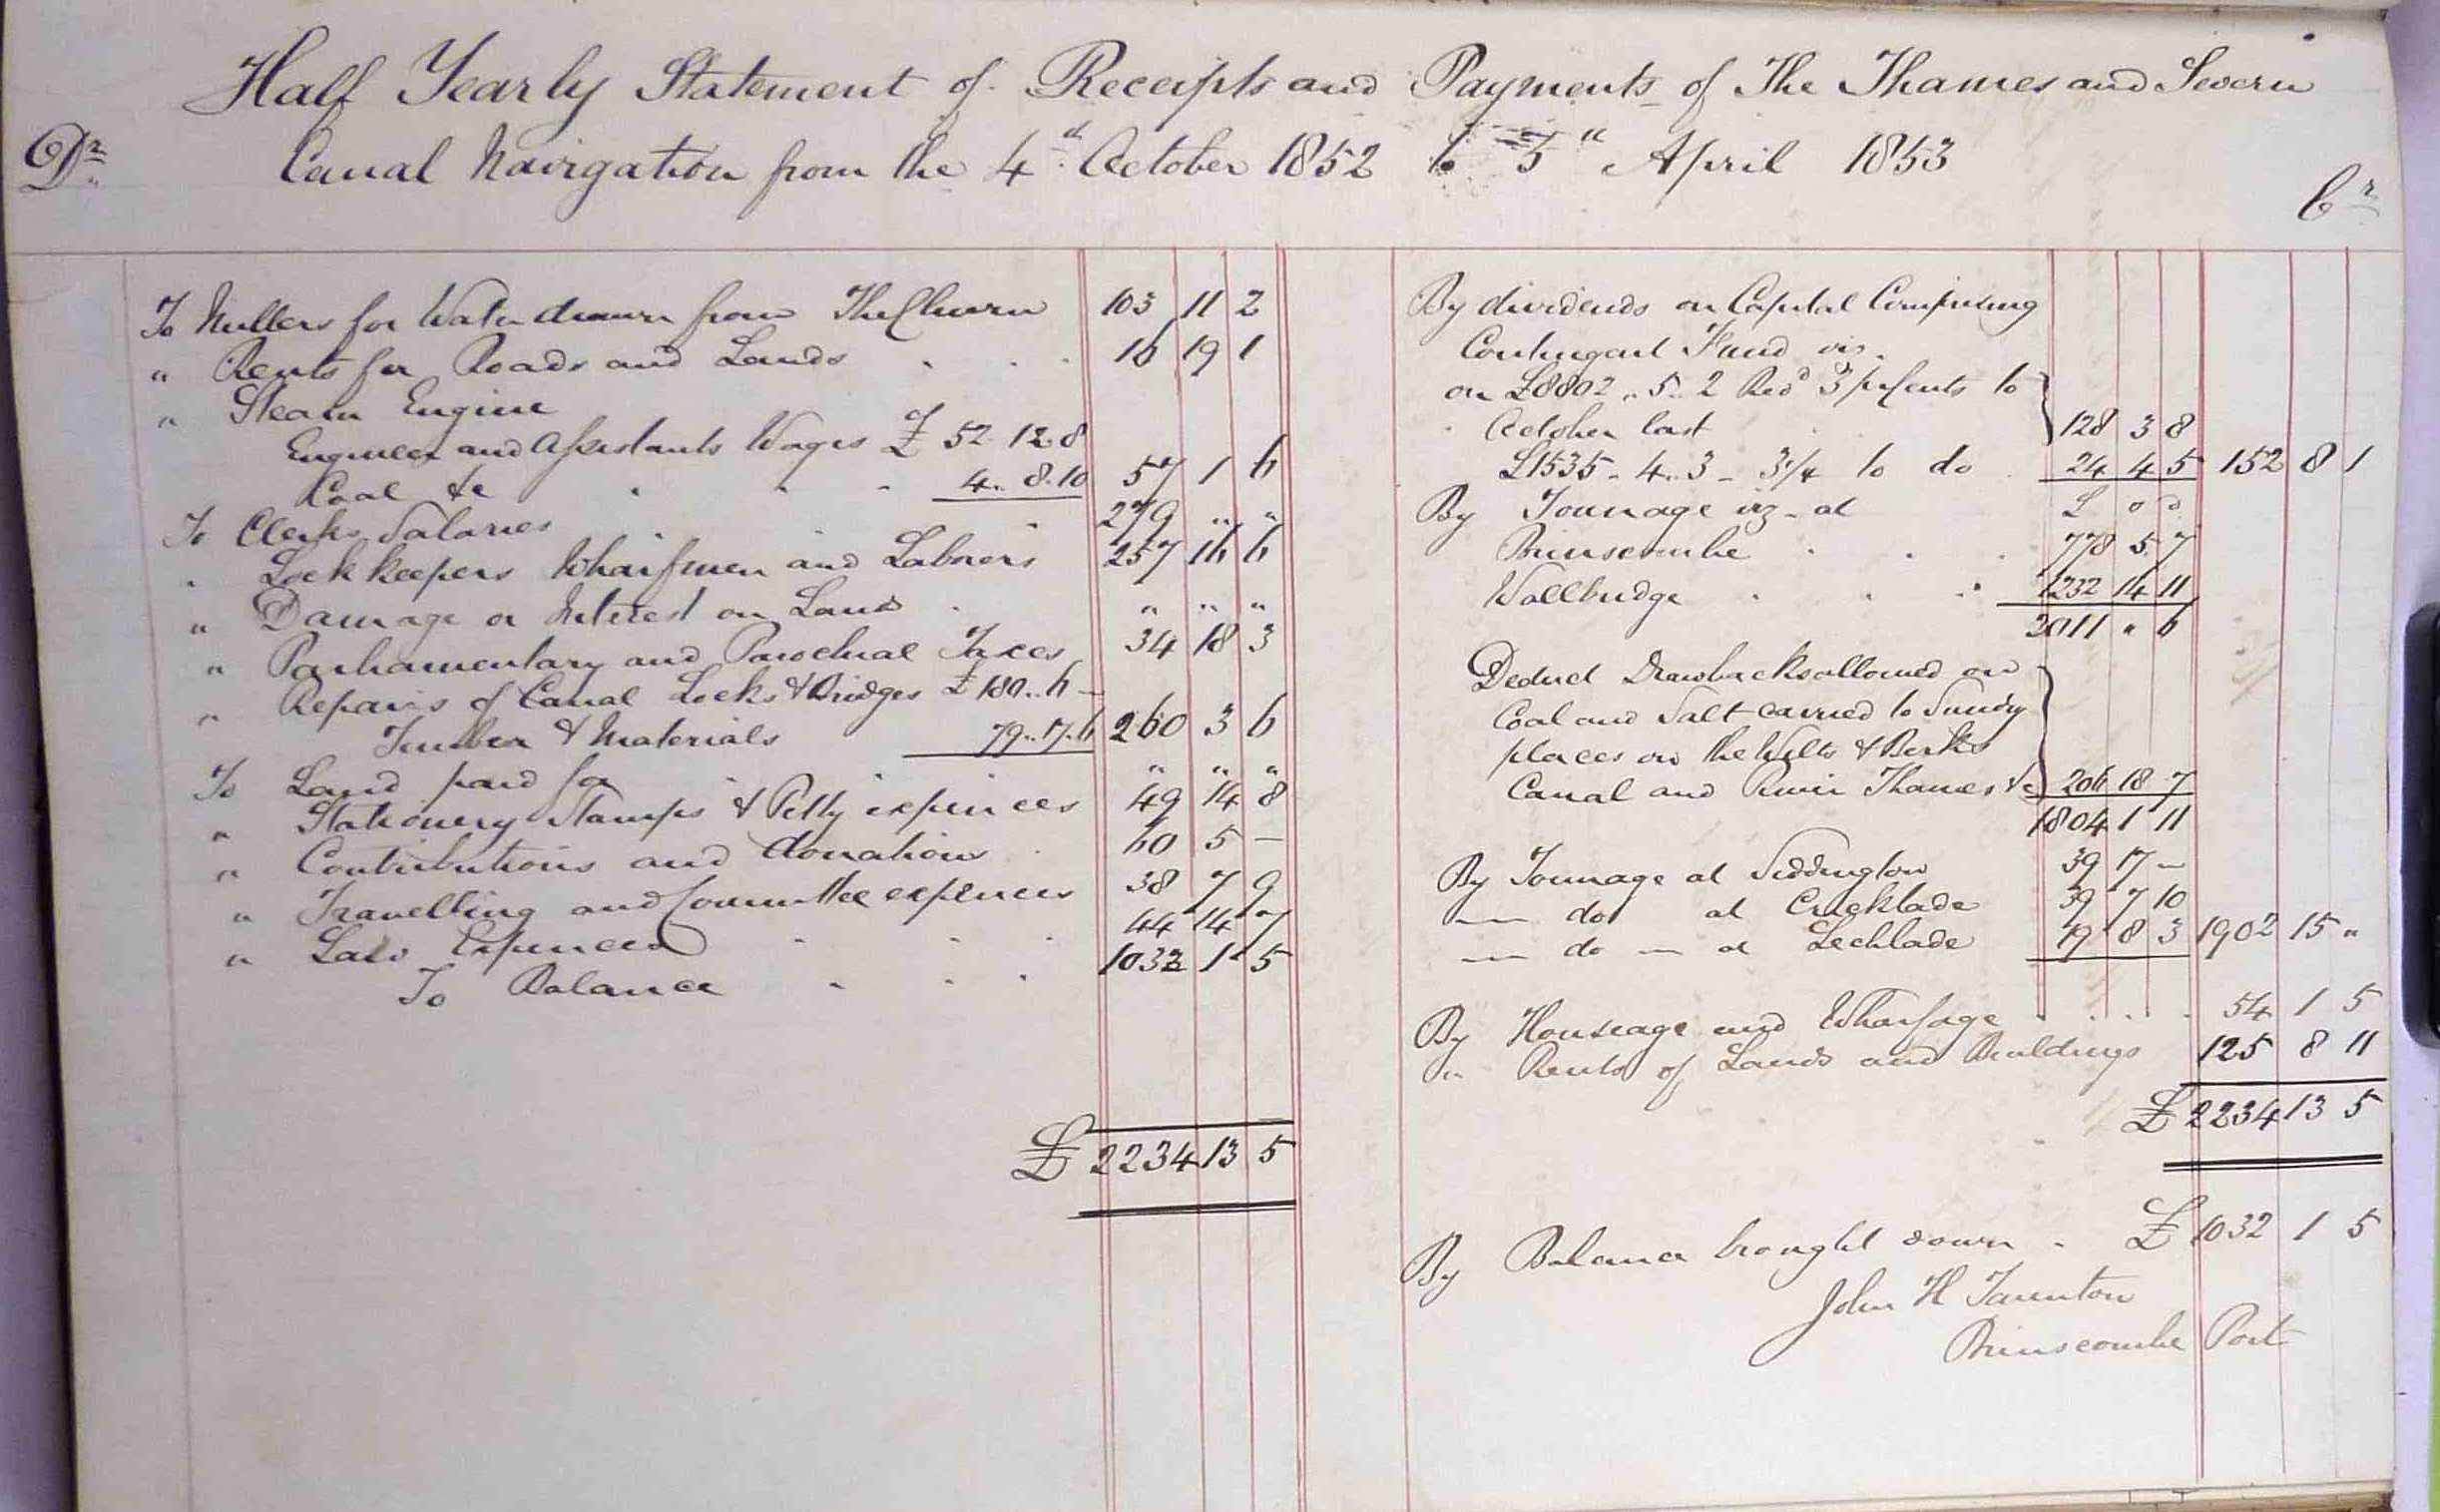 Half Yearly Statement of Receipts and Payments of The Thames and Severn
Dr Canal Navigation from the 4th October 1852 to 5" April 1853 Cr
To Millers for Water drawn from The Churn 103 11 2
" Rents for Roads and Lands 16 19 1
" Steam Engine
Engineer and Assistants Wages £ 52 12 8
Coal &c 4 .. 8 . 10 57 1 6
To Clerks Salaries 279 " "
" Lock keepers Wharfmen and Labrers 257 16 6
" Damage or Interest on Land " " "
" Parliamentary and Parochial Taxes 34 18 3
" Repairs of Canal Locks & Bridges £ 180 .. 6 -
Timber & Materials 79 .. 17 . 6 260 3 6
To Land paid for " " "
" Stationery Stamps & Petty expences 49 14 8
" Contributions and donations 60 5 —
" Travelling and Committee expences 38 7 9
" Law Expences 44 14 7
To Balance 1032 1 5
£ 2234 13 5
By dividends on Capital Comprising
Contingent Fund viz.
on £8802 .. 5 .. 2 Red'd 3 pr Cents to
October last 128 3 8
£1535 - 4 .. 3 - 3 1/4 to do 24 4 5 152 8 1
By Tonnage viz - at £ s d
Brimscombe 778 5 7
Wallbridge 1232 14 11
2011 " 6
Deduct Drawbacks allowed on
Coal and Salt carried to Sundry
places on the Wilts & Berks
Canal and River Thames &c 206 18 7
1804 1 11
By Tonnage at Siddington 39 17 —
— do at Cricklade 39 7 10
— do — at Lechlade 19 8 3 1902 15 "
By Houseage and Wharfage 54 1 5
" Rents of Lands and Buildings 125 8 11
£ 2234 13 5
By Balance brought down - £ 1032 1 5
John H Taunton
Brimscombe Port